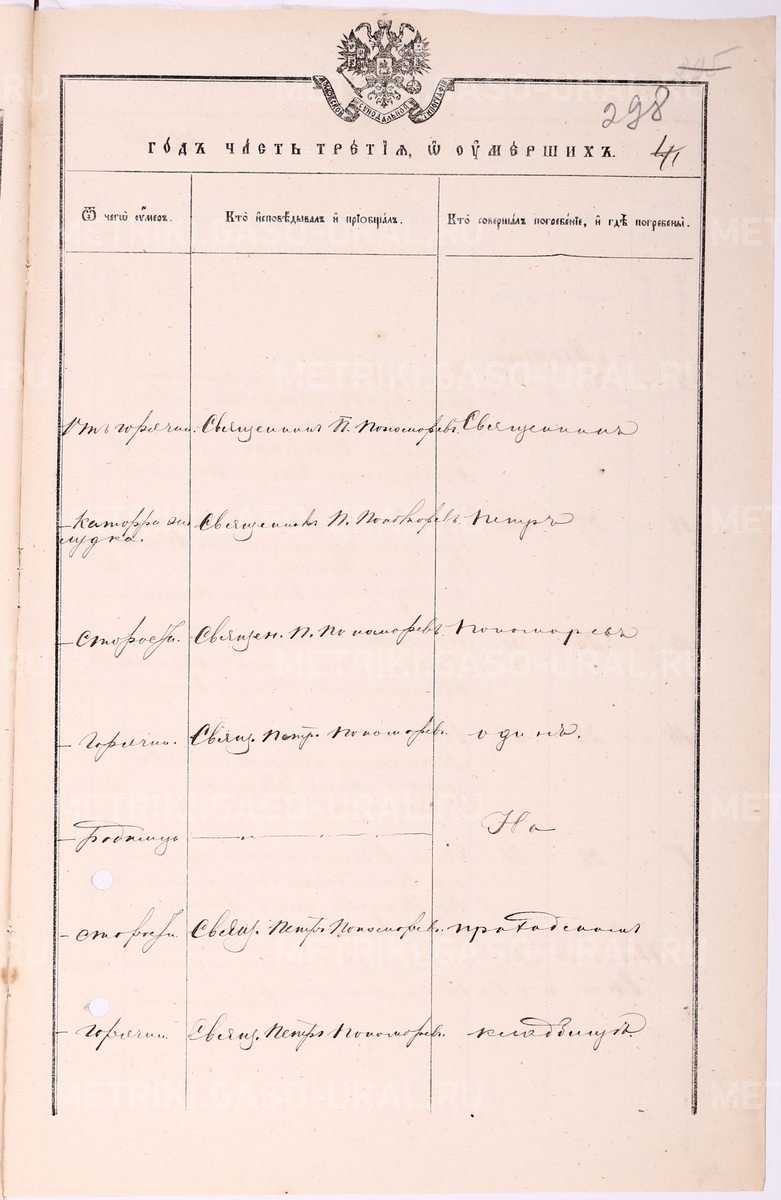 295
298
МОСКОВСКОЙ СѴНОДАЛЬНОЙ ТИПОГРАФІИ
ГО́ДЪ ЧА́СТЬ ТРЕ́ТІѦ, Ѡ ОУ҆МЕ́РШИХЪ.
4
Ѿ чегѡ̀ оу҆́меръ.
Кто̀ и҆сповѣ́дывалъ и҆ прїѡбща́лъ.
Кто̀ соверша́лъ погребе́нїе, и҆ гдѣ̀ погребены̀.
Отъ горячки. Священникъ П. Пономаревъ. Священникъ
– Каторра же
лудка. Священникъ П. Пономаревъ. Петръ
– старости. Священ. П. Пономаревъ Пономаревъ
– Горячки. Свящ. Петръ Пономаревъ. одинъ.
– Родимца На
– старости Свящ. Петръ Пономаревъ. приходскомъ
– Горячки Свящ. Петръ Пономаревъ. кладбищѣ.
METRIKI.GASO-URAL.RU